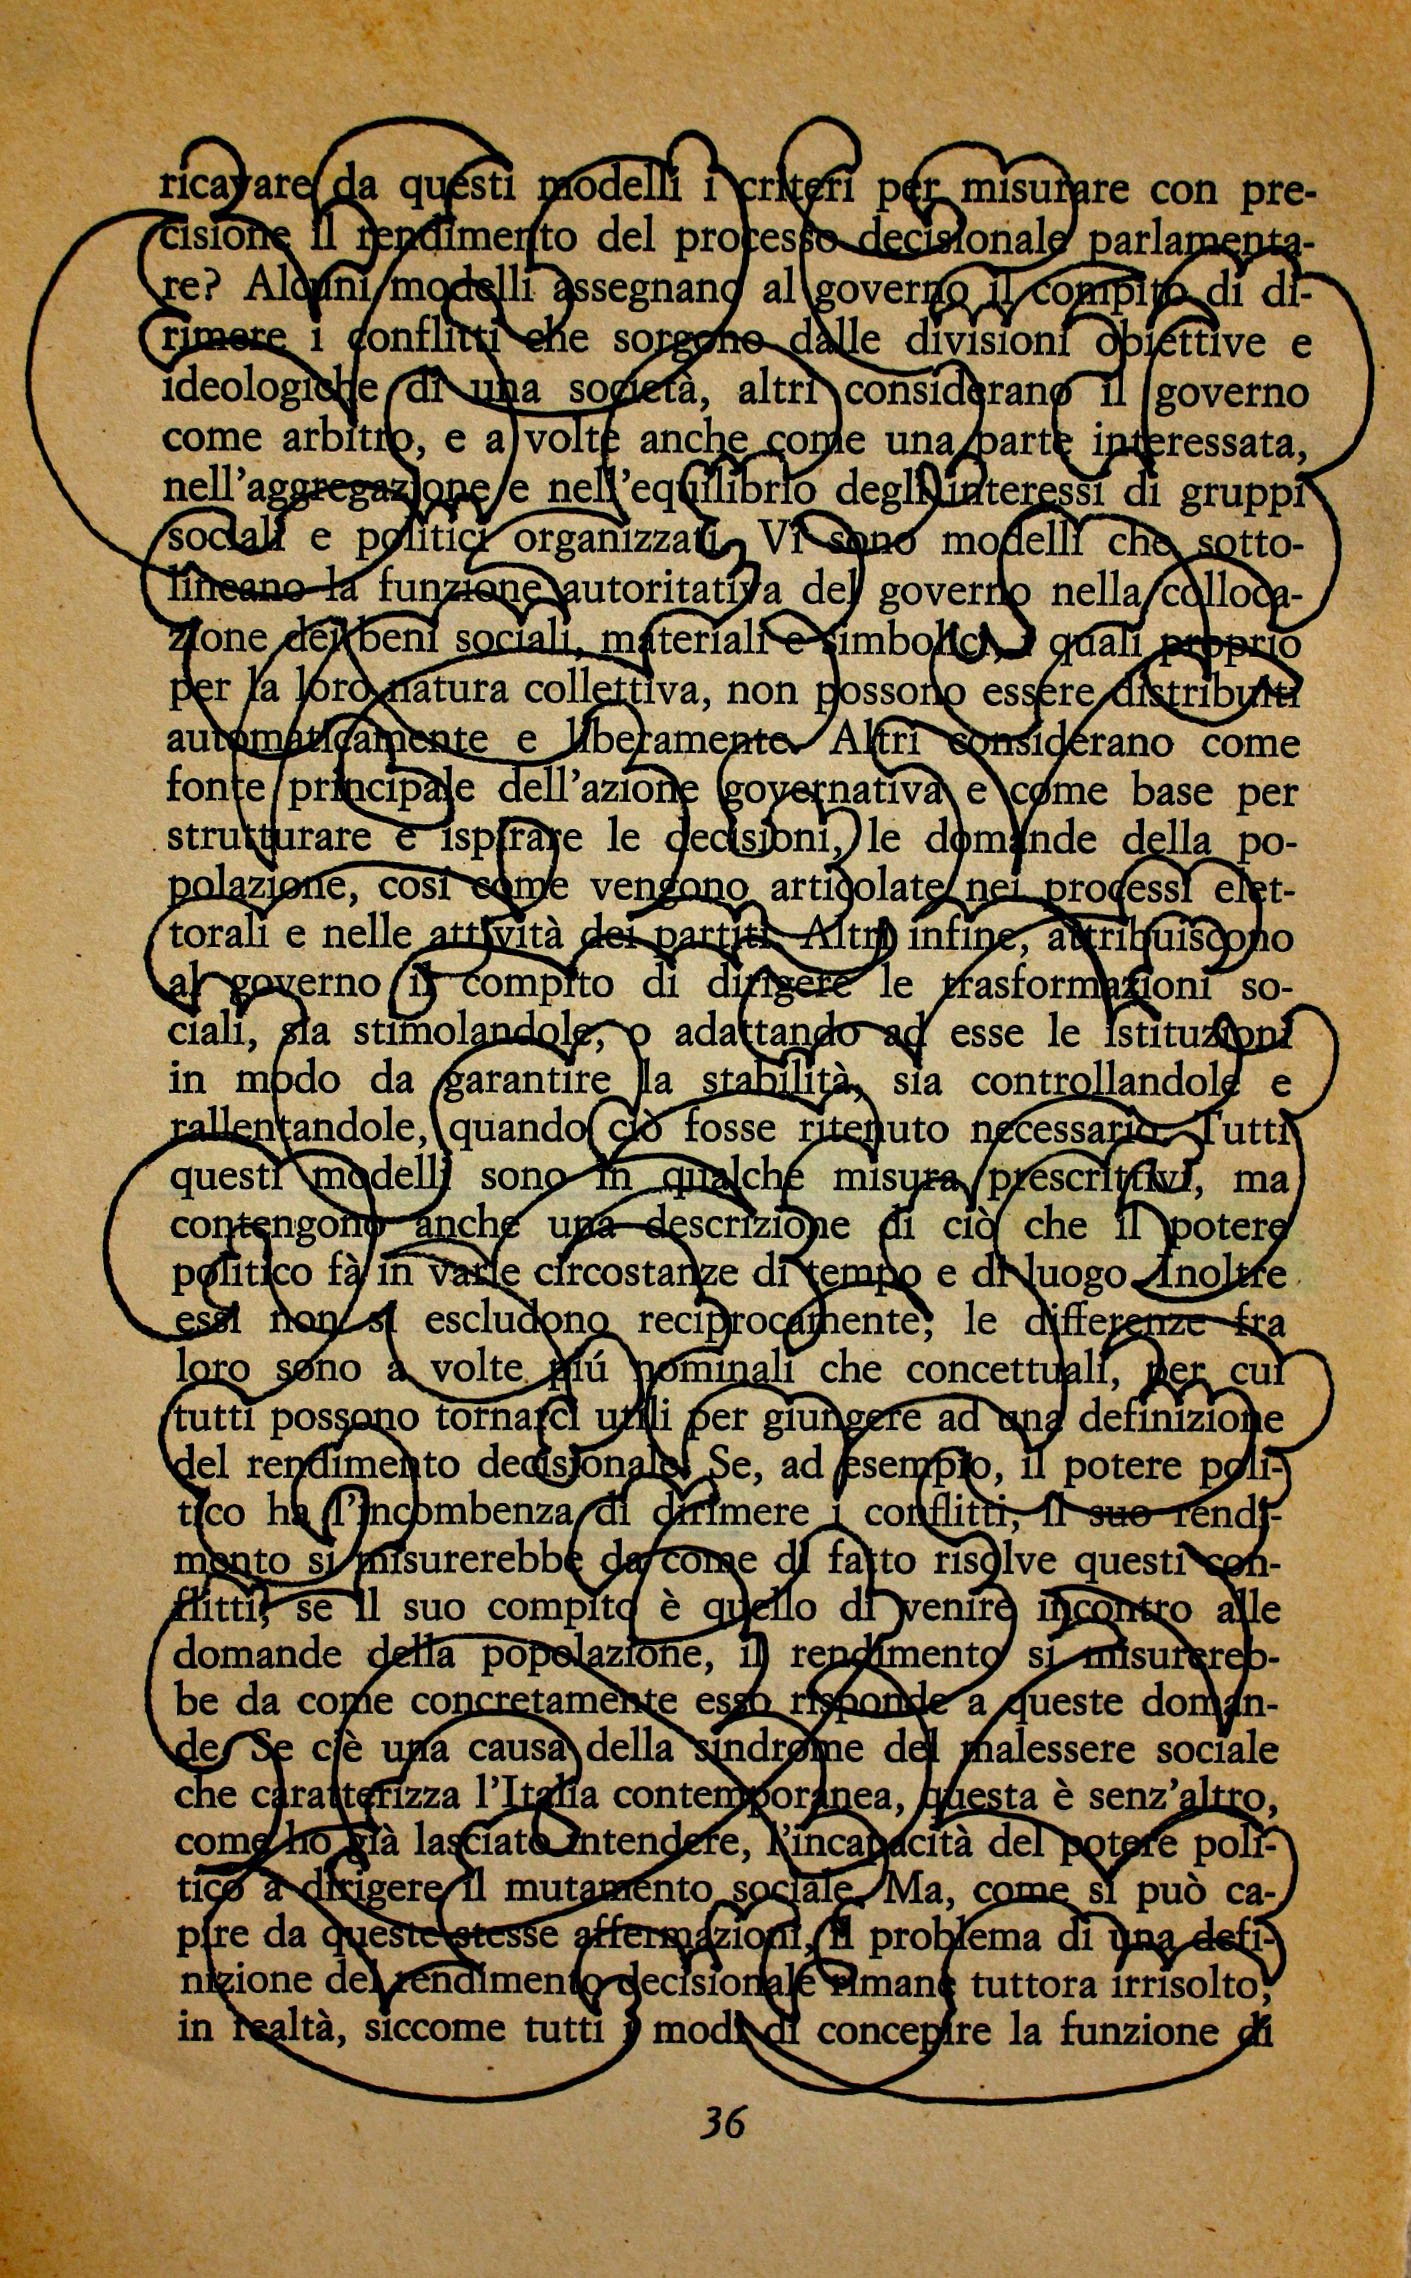 ricavare da questi modelli i criteri per misurare con pre-
cisione il rendimento del processo decisionale parlamenta-
re? Alcuni modelli assegnano al governo il compito di di-
rimere i conflitti che sorgono dalle divisioni obiettive e
ideologiche di una società, altri considerano il governo
come arbitro, e a volte anche come una parte interessata,
nell'aggregazione e nell'equilibrio degli interessi di gruppi
sociali e politici organizzati. Vi sono modelli che sotto-
lineano la funzione autoritativa del governo nella colloca-
zione dei beni sociali, materiali e simbolici, i quali proprio
per la loro natura collettiva, non possono essere distribuiti
automaticamente e liberamente. Altri considerano come
fonte principale dell'azione governativa e come base per
strutturare e ispirare le decisioni, le domande della po-
polazione, cosí come vengono articolate nei processi elet-
torali e nelle attività dei partiti. Altri infine, attribuiscono
al governo il compito di dirigere le trasformazioni so-
ciali, sia stimolandole, o adattando ad esse le istituzioni
in modo da garantire la stabilità, sia controllandole e
rallentandole, quando ciò fosse ritenuto necessario. Tutti
questi modelli sono in qualche misura prescrittivi, ma
contengono anche una descrizione di ciò che il potere
politico fà in varie circostanze di tempo e di luogo. Inoltre
essi non si escludono reciprocamente; le differenze fra
loro sono a volte piú nominali che concettuali, per cui
tutti possono tornarci utili per giungere ad una definizione
del rendimento decisionale. Se, ad esempio, il potere poli-
tico ha l'incombenza di dirimere i conflitti, il suo rendi-
mento si misurerebbe da come di fatto risolve questi con-
flitti; se il suo compito è quello di venire incontro alle
domande della popolazione, il rendimento si misurereb-
be da come concretamente esso risponde a queste doman-
de. Se c'è una causa della sindrome del malessere sociale
che caratterizza l'Italia contemporanea, questa è senz'altro,
come ho già lasciato intendere, l'incapacità del potere poli-
tico a dirigere il mutamento sociale. Ma, come si può ca-
pire da queste stesse affermazioni, il problema di una defi-
nizione del rendimento decisionale rimane tuttora irrisolto;
in realtà, siccome tutti i modi di concepire la funzione di
36